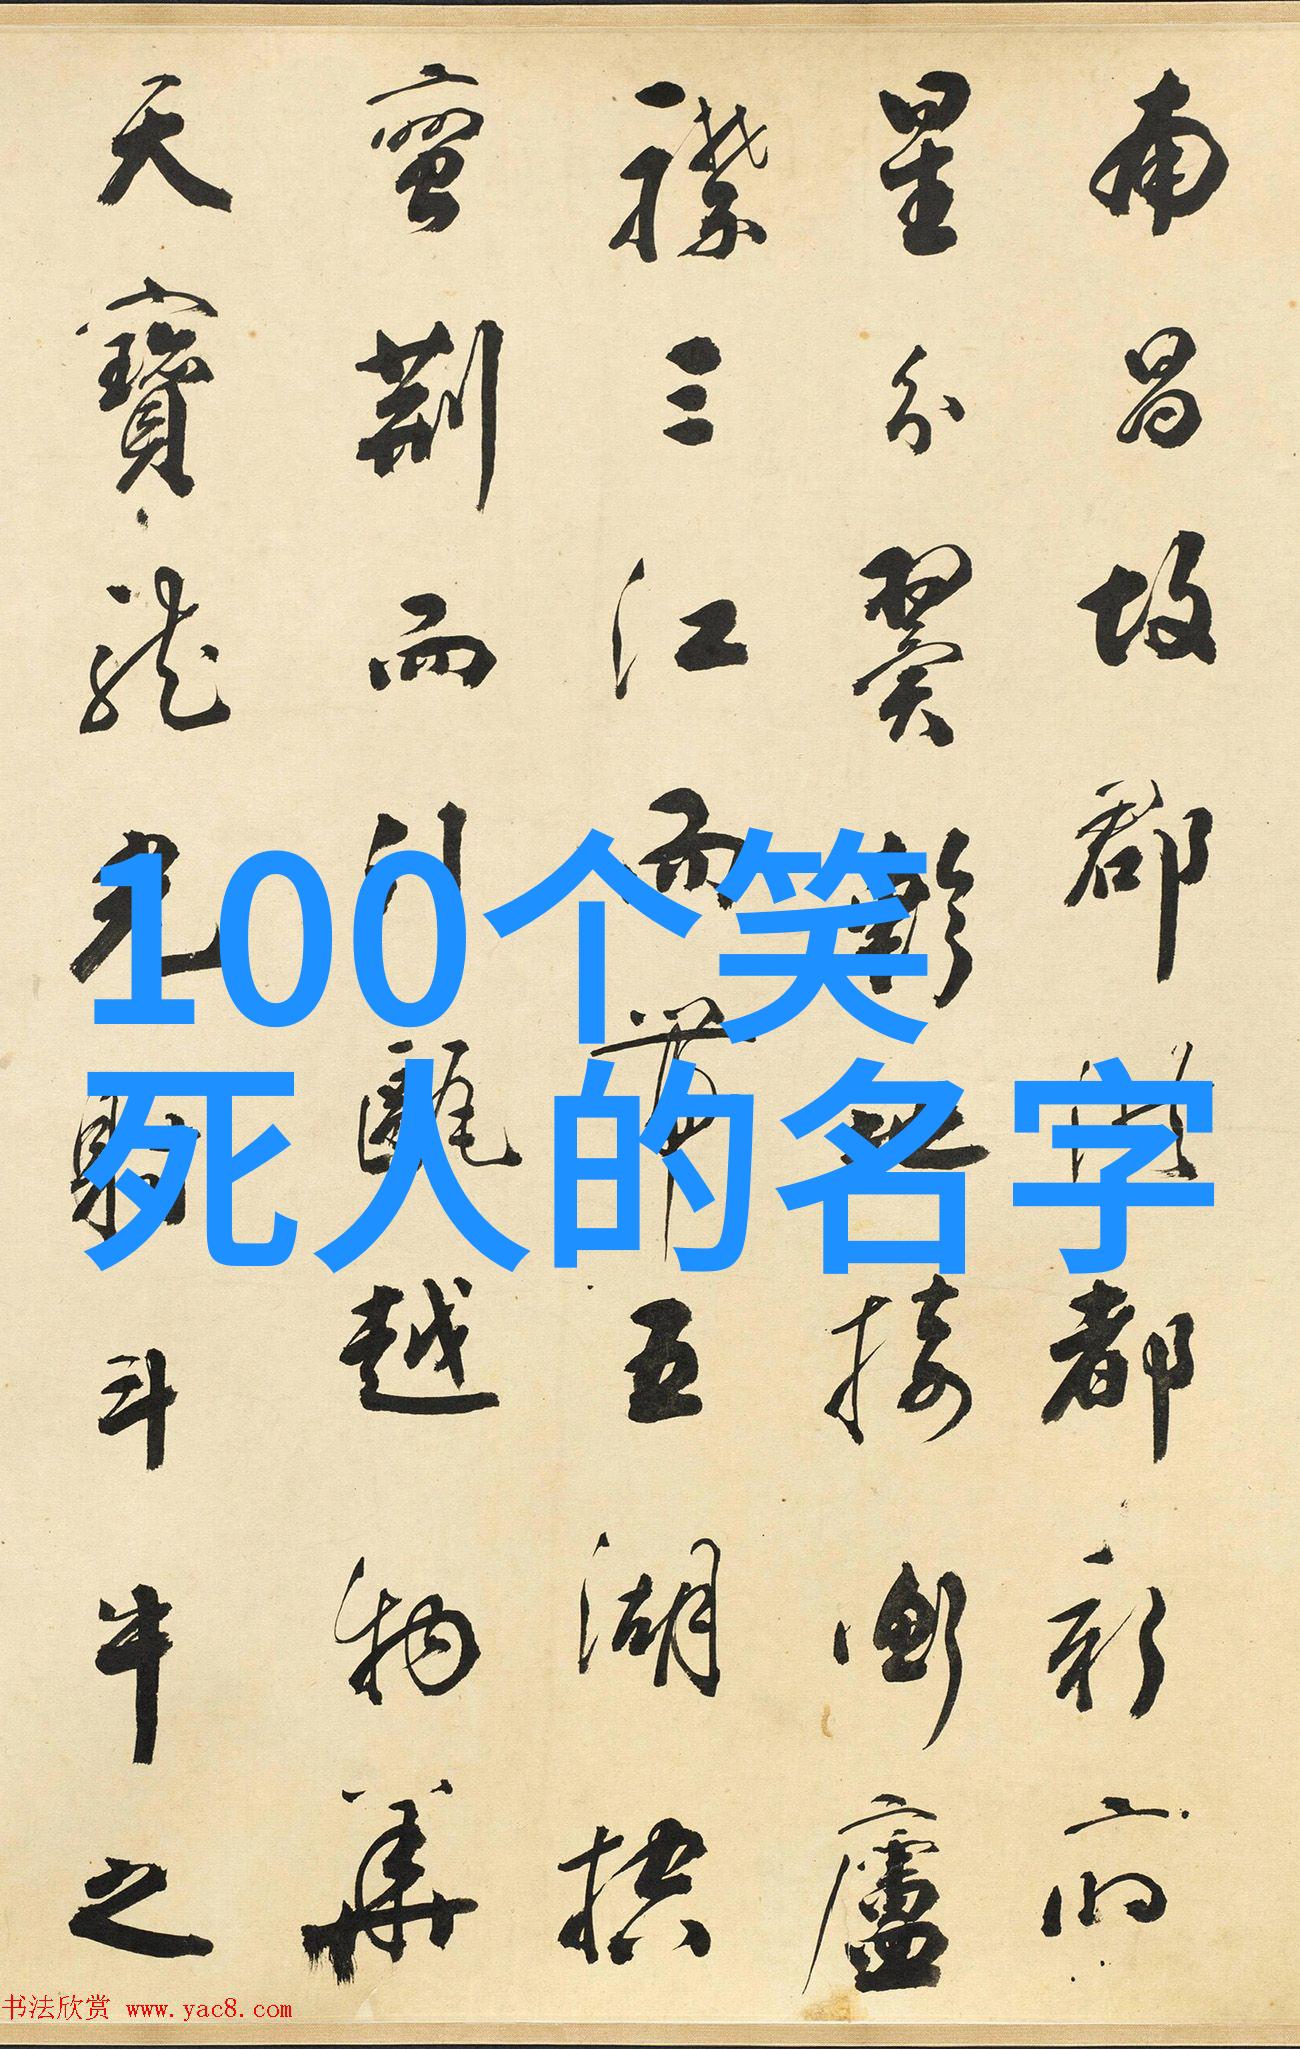 南昌故郡洪都新府
星分翼軫地接衡廬
襟三江而帶五湖控
蠻荊而引甌越物華
天寶龍光射斗牛之
100个笑
死人的名字
书法欣赏 www.yac8.com